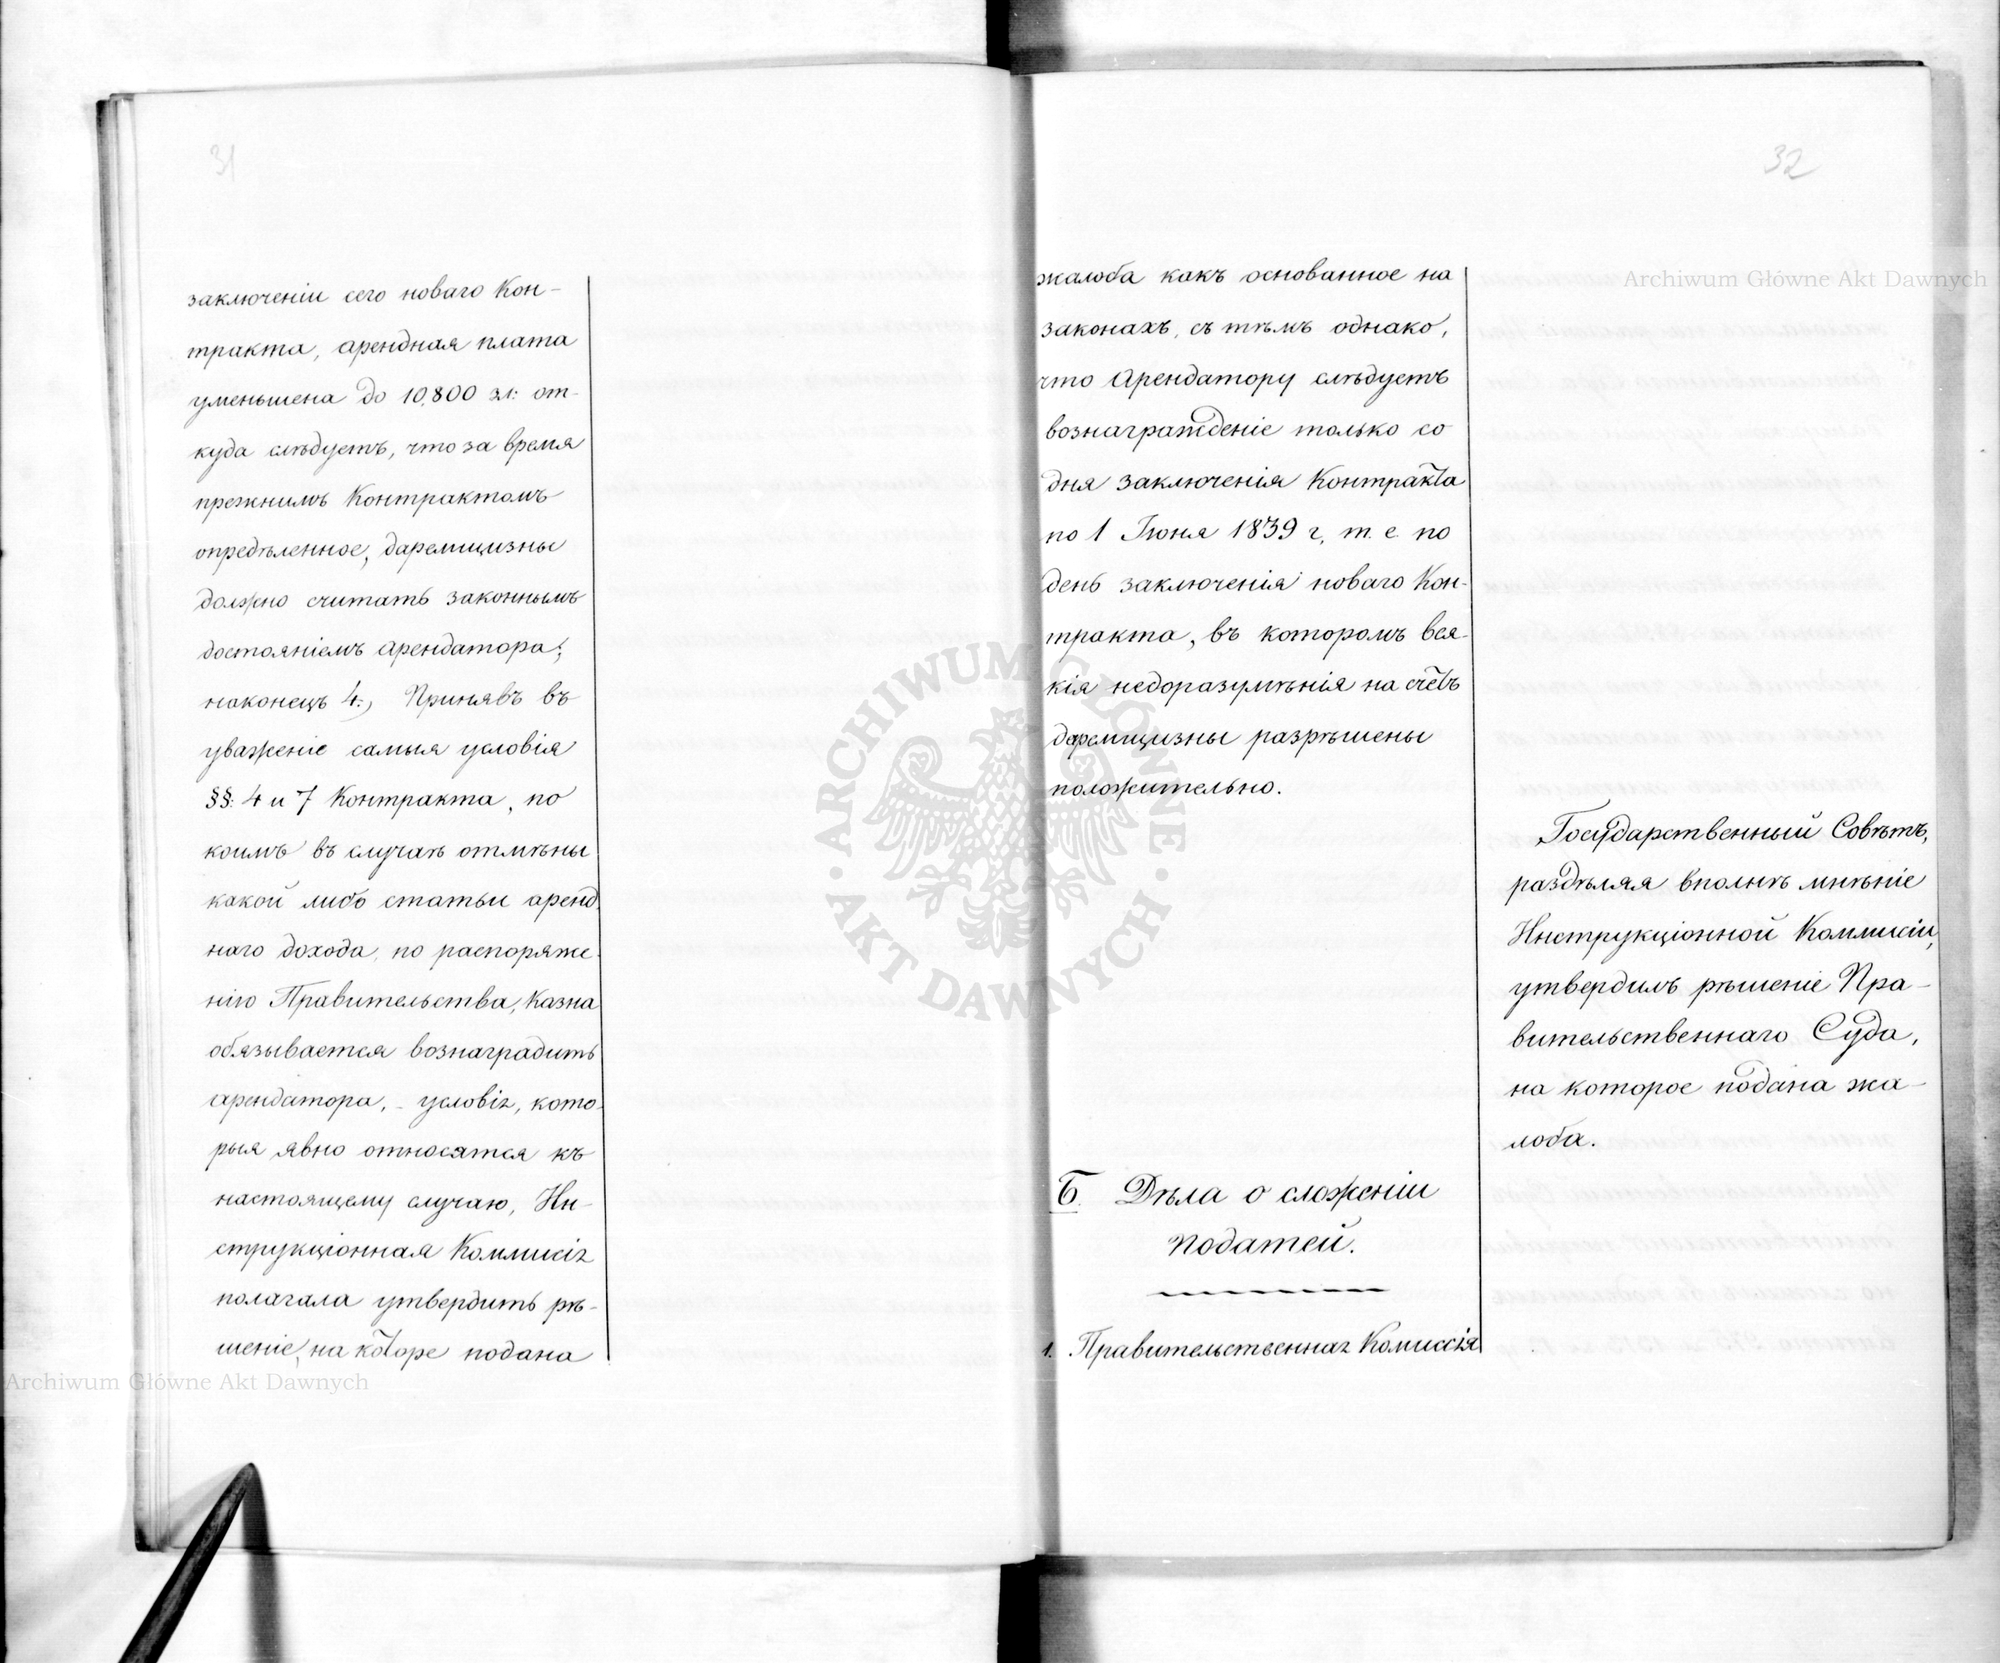 31
заключеніи сего новаго Кон-
тракта, арендная плата
уменьшена до 10,800 зл: от-
куда слѣдуетъ, что за время
прежнимъ Контрактомъ
опредѣленное, даремщизны
должно считать законнымъ
достояніемъ арендатора;
наконецъ 4.) Принявъ въ
уваженіе самыя условія
§§: 4 и 7 Контракта, по
коимъ въ случаѣ отмѣны
какой либо статьи аренд-
наго дохода, по распоряже-
нію Правительства, Казна
обязывается вознаградить
арендатора, - условія, кото-
рыя явно относятся къ
настоящему случаю, Ин-
струкціонная Коммисія
полагала утвердить рѣ-
шеніе, на которе подана
32
жалоба какъ основанное на
законахъ, съ тѣмъ однако,
что Арендатору слѣдуетъ
вознагражденіе только со
дня заключенія Контракта
по 1 Іюня 1839 г, т. е. по
день заключенія новаго Кон-
тракта, въ которомъ вся-
кія недоразумѣнія на счетъ
даремщизны разрѣшены
положительно.
Государственный Совѣтъ,
раздѣляя вполнѣ мнѣніе
Инструкціонной Коммисіи,
утвердилъ рѣшеніе Пра-
вительственнаго Суда,
на которое подана жа-
лоба.
Б. Дѣла о сложеніи
податей.
1. Правительственная Комиссія
Archiwum Główne Akt Dawnych
Archiwum Główne Akt Dawnych
ARCHIWUM GŁÓWNE AKT DAWNYCH